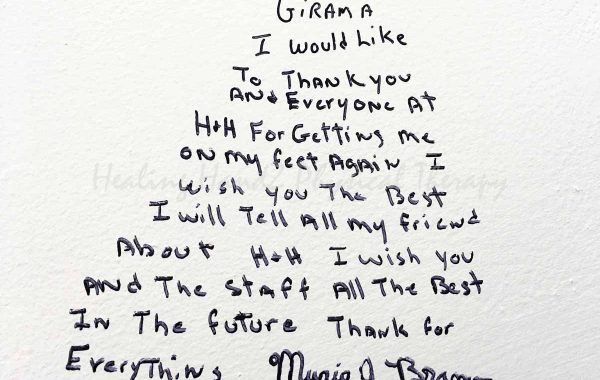 GiRAMA
I would Like
To Thank you
AND Everyone At
H+H For Getting me
on my feet Again I
wish you The Best
I will Tell All my friend
About H+H I wish you
AND The Staff All The Best
In The future Thank for
Everything
Healing Handz Physical Therapy